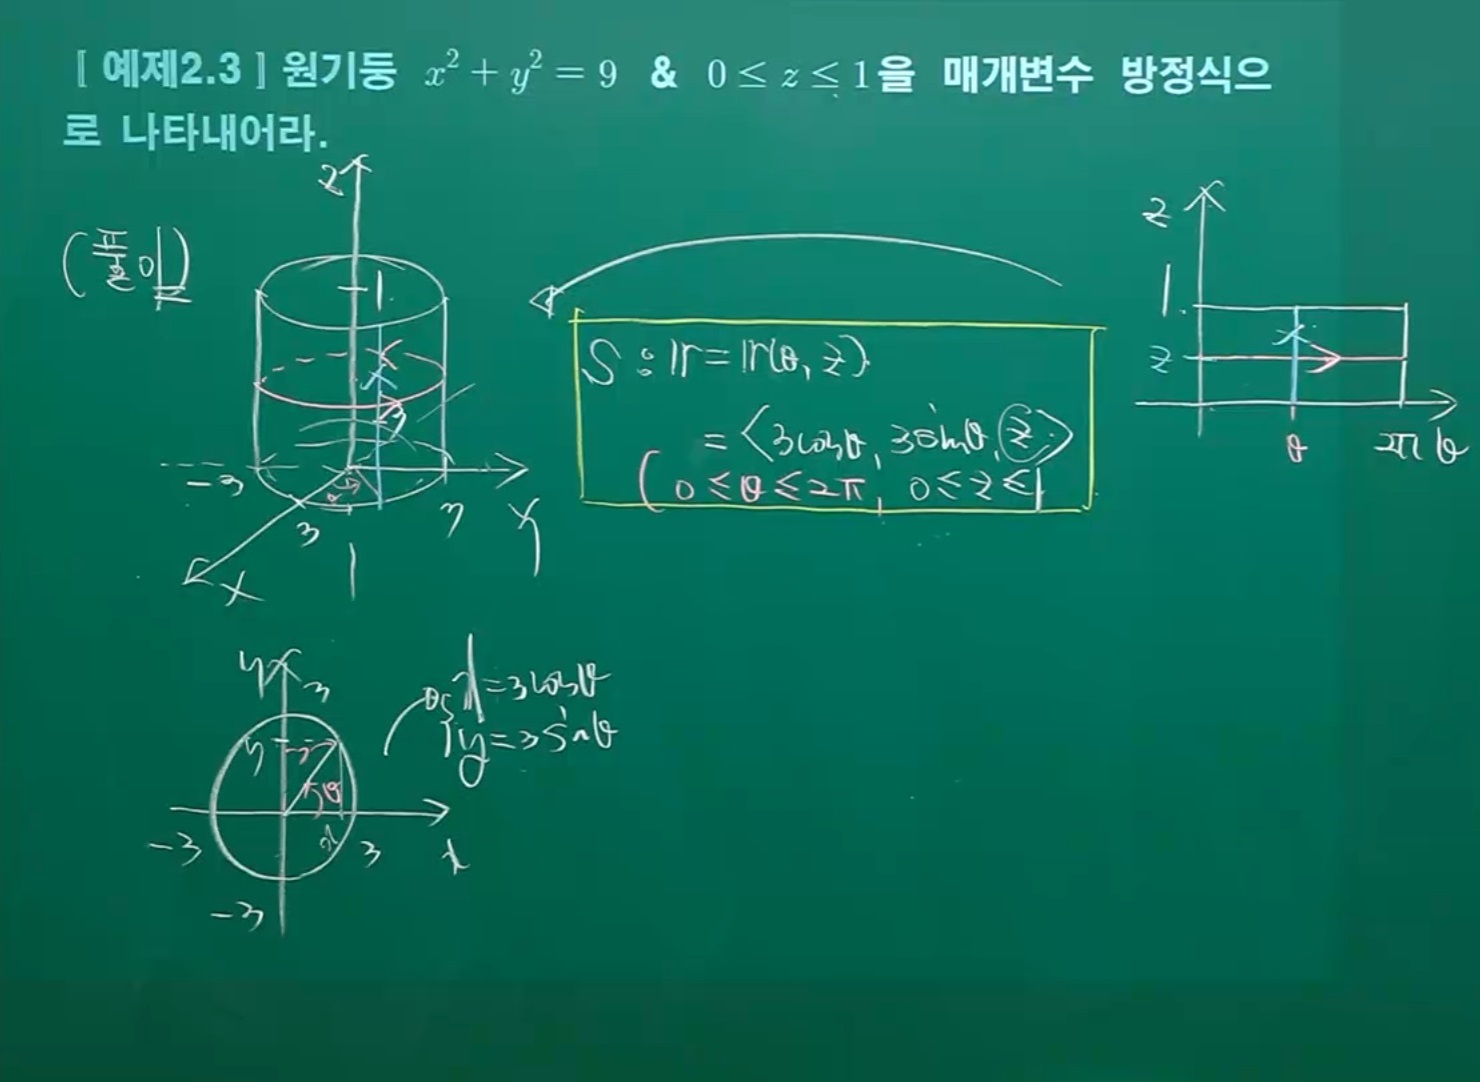 [ 예제2.3 ] 원기둥 x² + y² = 9 & 0 ≤ z ≤ 1을 매개변수 방정식으
로 나타내어라.
(풀이)
z
1
-3
3
3
y
x
S : r = r(θ, z)
= <3cosθ, 3sinθ, z>
(0 ≤ θ ≤ 2π, 0 ≤ z ≤ 1
z
1
z
θ
2π θ
y
3
y
θ
x
-3
3
x
-3
x = 3cosθ
y = 3sinθ